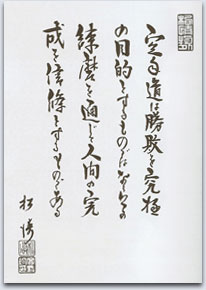 空手道は勝敗を究極
の目的とするものではなくその
練磨を通じて人間の完
成を信條とするものである
松濤